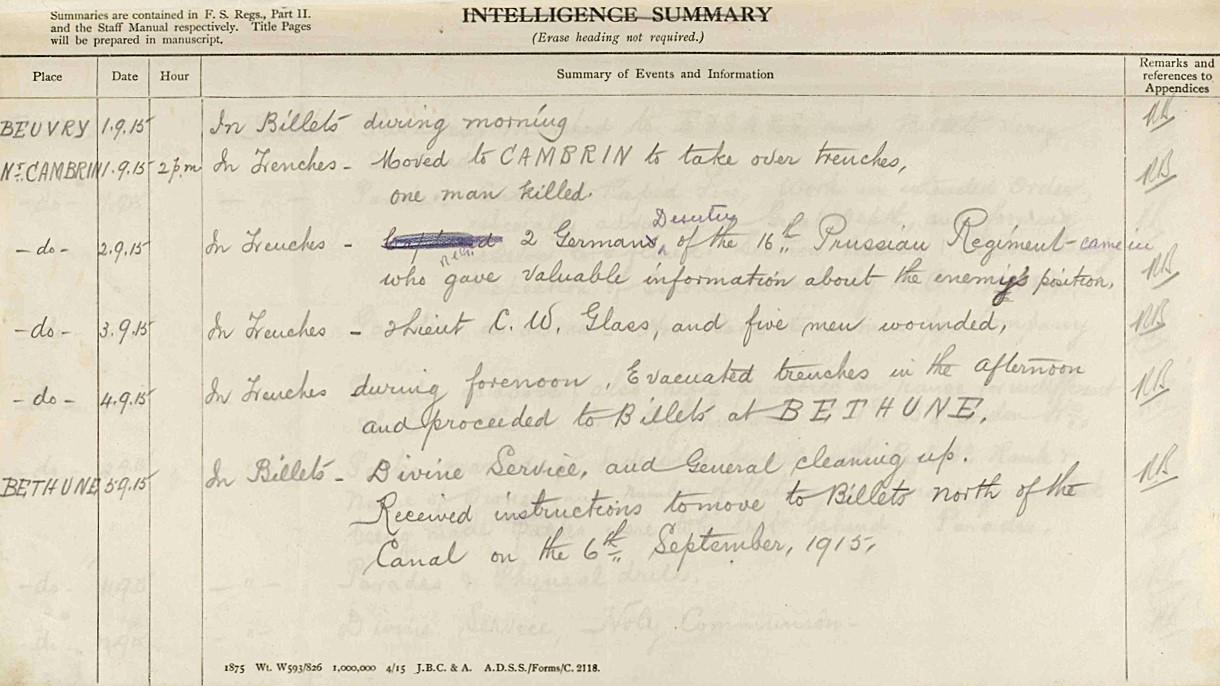 Summaries are contained in F. S. Regs., Part II.
and the Staff Manual respectively. Title Pages
will be prepared in manuscript.
INTELLIGENCE SUMMARY
(Erase heading not required.)
Place Date Hour Summary of Events and Information Remarks and references to Appendices
BEUVRY 1.9.15 In Billets during morning RB
Nr. CAMBRIN 1.9.15 2 p.m In Trenches - Moved to CAMBRIN to take over trenches, RB
one man killed.
- do - 2.9.15 In Trenches - 2 German Deserters of the 16th Prussian Regiment - came in RB
who gave valuable information about the enemy's position.
- do - 3.9.15 In Trenches - 2Lieut C. W. Glass, and five men wounded, RB
- do - 4.9.15 In Trenches during forenoon. Evacuated trenches in the afternoon RB
and proceeded to Billets at BETHUNE.
BETHUNE 5.9.15 In Billets - Divine Service, and General cleaning up. RB
Received instructions to move to Billets north of the
Canal on the 6th September, 1915.
1875 Wt. W593/826 1,000,000 4/15 J.B.C. & A. A.D.S.S./Forms/C. 2118.